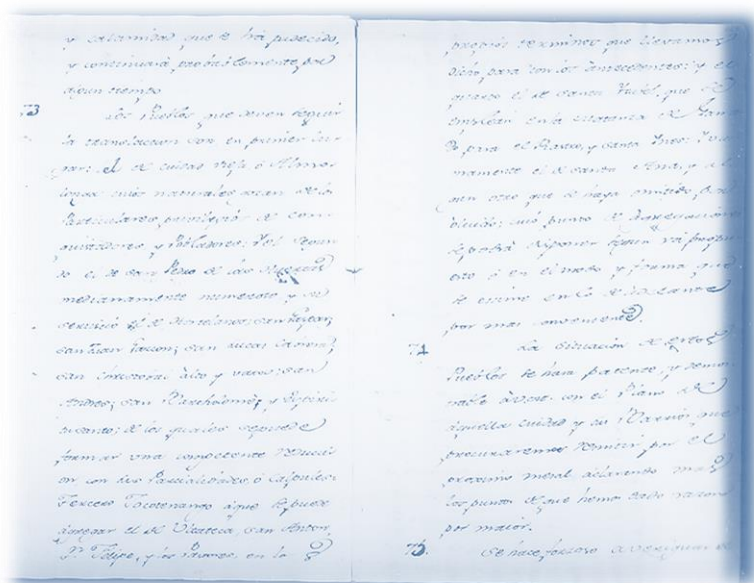 y calamidad que se há padecido,
y continuará probablemente por
algun tiempo
73 Los Pueblos que deven seguir
la translacion son en primer lu-
gar: el de ciudad vieja ó Almo-
longa cuios naturales gozan de los
particulares privilegios de con-
quistadores y Pobladores: Y el segun-
do el de san Pedro de las Huertas
medianamente numeroso y su
servicio el de san Gaspar;
san Juan san Lucas
san christoval álto y vaxo; san
Andres; san Bartholomé; y Espiri-
tusanto; de los quales se puede
formar una competente reducci-
on con sus Parcialidades ó Calpules:
Tercero Jocotenango á que se puede
agregar el de Utateca, san Anton,
S.n Felipe, y los en la
propios terminos que llevamos
dicho para con los antecedentes: y el
quarto el de santa Ysabel que se
emplean en la matanza de Gana-
do para el Rastro, y santa Ynes: Y ulti-
mamente el de santa Ana, y al-
gun otro que se haya omitido por
olvido; cuio punto de Agregacion
se podrá disponer segun vá propu-
esto ó en el modo y forma que
se estime en lo de adelante
por mas conveniente.
74 La situación de estos
Pueblos se hará patente, y demos-
trable á vista con el Plano de
aquella ciudad y sus Barrios que
procuraremos remitir por el
proximo mensal aclarando mas
los puntos de que hemos dado razon
por maior.
75. Se hace forzoso averiguar